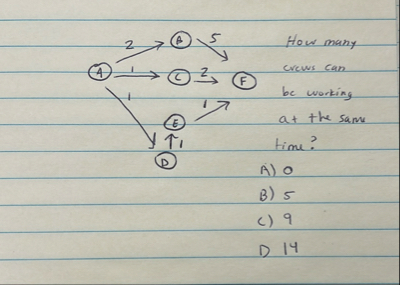 2 5
A 1 C 2 F
1 1
E
1
D
How many
crews can
be working
at the same
time?
A) 0
B) 5
C) 9
D 14